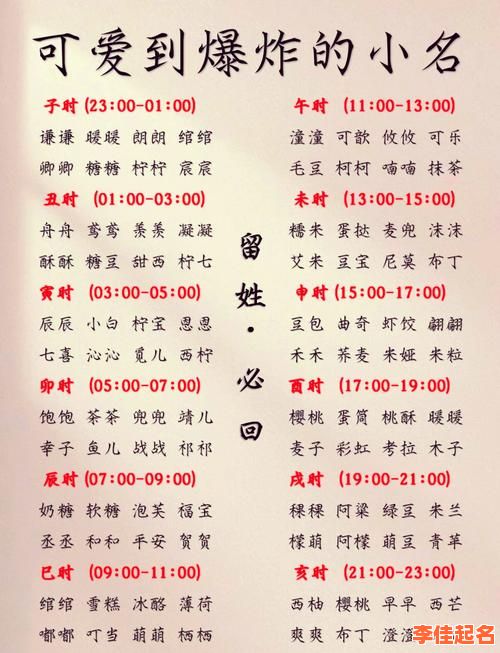 可爱到爆炸的小名
子时 (23:00-01:00)
谦谦 暖暖 朗朗 绾绾
卿卿 糖糖 柠柠 宸宸
丑时 (01:00-03:00)
舟舟 鸢鸢 羡羡 凝凝
酥酥 糖豆 甜西 柠七
寅时 (03:00-05:00)
辰辰 小白 柠宝 恩恩
七喜 沁沁 觅儿 西柠
卯时 (05:00-07:00)
饱饱 茶茶 兜兜 靖儿
幸子 鱼儿 战战 祁祁
辰时 (07:00-09:00)
奶糖 软糖 泡芙 福宝
丞丞 和和 平安 贺贺
巳时 (09:00-11:00)
绾绾 雪糕 冰酪 薄荷
嘟嘟 叮当 萌萌 栖栖
留姓·必回
午时 (11:00-13:00)
潼潼 可歆 攸攸 可乐
毛豆 柯柯 喃喃 抹茶
未时 (13:00-15:00)
糯米 蛋挞 麦兜 沫沫
艾米 豆宝 尼莫 布丁
申时 (15:00-17:00)
豆包 曲奇 虾饺 翩翩
禾禾 荞麦 朱娅 米粒
酉时 (17:00-19:00)
樱桃 蛋筒 桃酥 暖暖
麦子 彩虹 考拉 木子
戌时 (19:00-21:00)
稞稞 阿梁 绿豆 米兰
檬萌 阿檬 萌豆 青苹
亥时 (21:00-23:00)
西柚 樱桃 早早 西芒
爽爽 布丁 澄澄
李佳起名